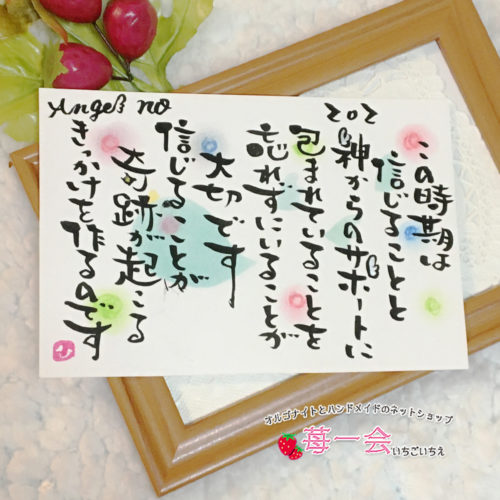 Angel no
202
この時期は
信じることと
神からのサポートに
包まれていることを
忘れずにいることが
大切です
信じることが
奇跡が起こる
きっかけを作るのです
オルゴナイトとハンドメイドのネットショップ
苺一会 いちごいちえ